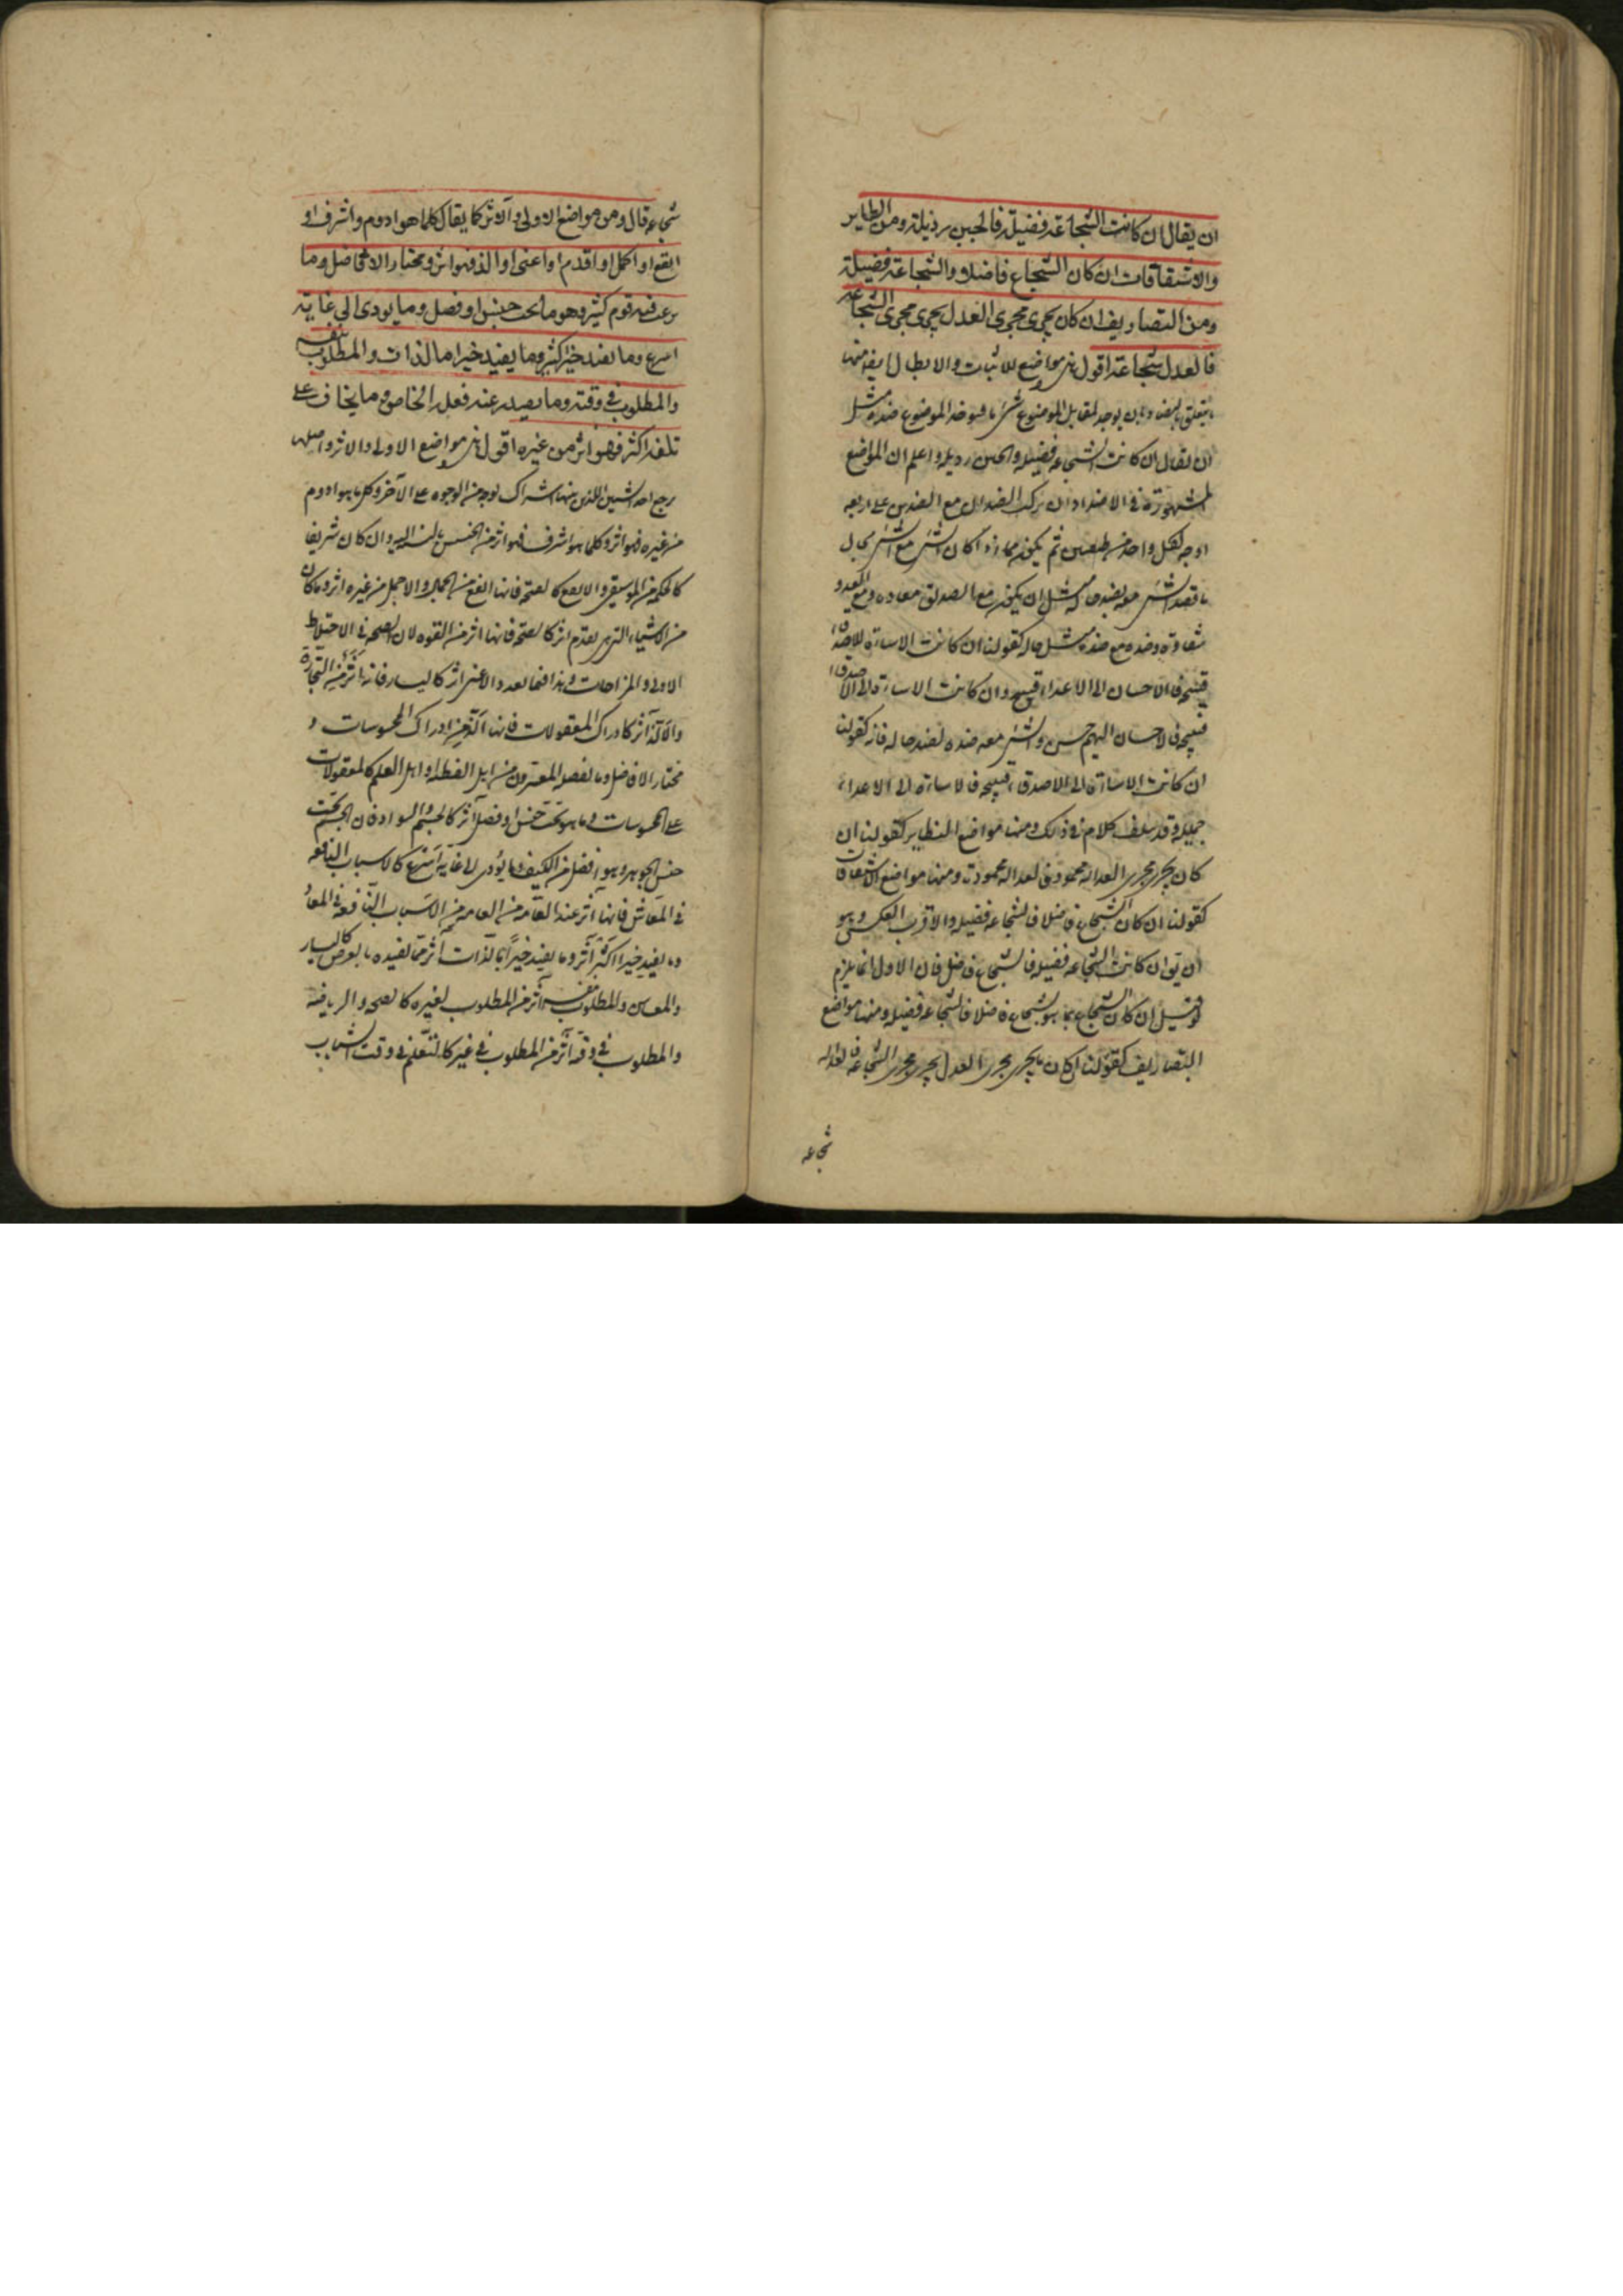 ان يقال ان كانت الشجاعة فضيلة فالجبن رذيلة ومن النظاير
والاشتقاقات ان كان الشجاع فاضلا والشجاعة فضيلة
ومن التصاريف ان كان يجرى مجرى العدل يجرى مجرى الشجاعة
فالعدل شجاعة اقول هى مواضع للاثبات والابطال ايضا منها
ما يتعلق بالتضاد بان يوجد لمقابل الموضوع شئ ما فيوخذ الموضوع ضده مثل
ان يقال ان كانت الشجاعه فضيله والجبن رذيله واعلم ان المواضع
المشهورة فى الاضداد ان تركب الضدان مع الضدين على اربعه
اوجه لكل واحد من ثم يكون اذا كان الشئ مع الشئ بحال
ما فضد الشئ معه بضد حاله مثل ان يكون مع الصديق معاده ومع العدو
شقاوة وضده مع ضده مثل حاله كقولنا ان كانت الاساءة للاصدقاء
قبيحه فالاحسان الى الاعداء قبيح وان كانت الاساءة الى الاصدقاء
قبيحه فالاحسان اليهم حسن والشئ معه ضده لضد حاله فانه كقولنا
ان كانت الاساءة الى الاصدقاء قبيحه فالاساءة الى الاعداء
جميله وقد سلف كلام فى ذلك ومنها مواضع النظاير كقولنا ان
كان يجرى مجرى العداله محمودة فالعداله محمودة ومنها مواضع الاشتقاقات
كقولنا ان كان الشجاع فاضلا فالشجاعه فضيله والاقرب العكس وهو
ان يق ان كانت الشجاعه فضيله فالشجاع فاضل فان الاول انما يلزم
لو قيل ان كان الشجاع بما هو شجاع فاضلا فالشجاعه فضيله ومنها مواضع
التصاريف كقولنا ان كان ما يجرى مجرى العدل يجرى مجرى الشجاعه فالعداله
شجاعه
شجاعه قال ومن مواضع الاولى والآثر كما يقال كلما هو ادوم واشرف او
انفع او اكمل او اقدم او اغنى او الذ فهو آثر ومختار الافاضل وما
يرغب فيه قوم كثير وهو ما تحت جنس او فصل وما يودى الى غايته
اسرع وما يفيد خيرا كثير وما يفيد خيرا ما لذات والمطلوب بنفسه
والمطلوب فى وقته وما يصدر عنه فعله الخاص وما يخاف على
تلفه اكثر فهو آثر من غيره اقول هى مواضع الاولى والاثر واصلها
يرجح احد الشيئين اللذين بينهما اشتراك بوجه من الوجوه على الآخر وكل ما هو ادوم
من غيره فهو اثر وكلما هو اشرف فهو اثر من الخسيس بالنسبة اليه وان كان شريفا
كالحكمة من الموسيقى والانفع كالصحة فانها انفع من الجمال والاجمل من غيره اثر وما كان
من الاشياء التى هى اقدم اثر كالصحة فانها اثر من القوه لان الصحه فى الاختلاط
الاولى والمزاجات وهذا فيما بعد والاغنى اثر كاليسار فانه اثر من التجارة
والالذ آثر كادراك المعقولات فانها الذ من ادراك المحسوسات و
مختار الافاضل وما يفضله المعتبرون من اهل الفطنه او اهل العلم كالمعقولات
على المحسوسات وما هو تحت جنس او فصل آثر كالجسم والسواد فان الجسم تحت
جنس الجوهر وهو افضل من الكيف وما يؤدى الى غايه اسرع كالاسباب النافعه
فى المعاش فانها آثر عند العامه من الاسباب النافعه فى المعاد
وما يفيد خيرا اكثر آثر وما يفيد خيرا بالذات آثر مما يفيده بالعرض كاليسار
والمعاش والمطلوب بنفسه آثر من المطلوب لغيره كالصحه والرياضه
والمطلوب فى وقته آثر من المطلوب فى غيره كالتعلم فى وقت الشباب